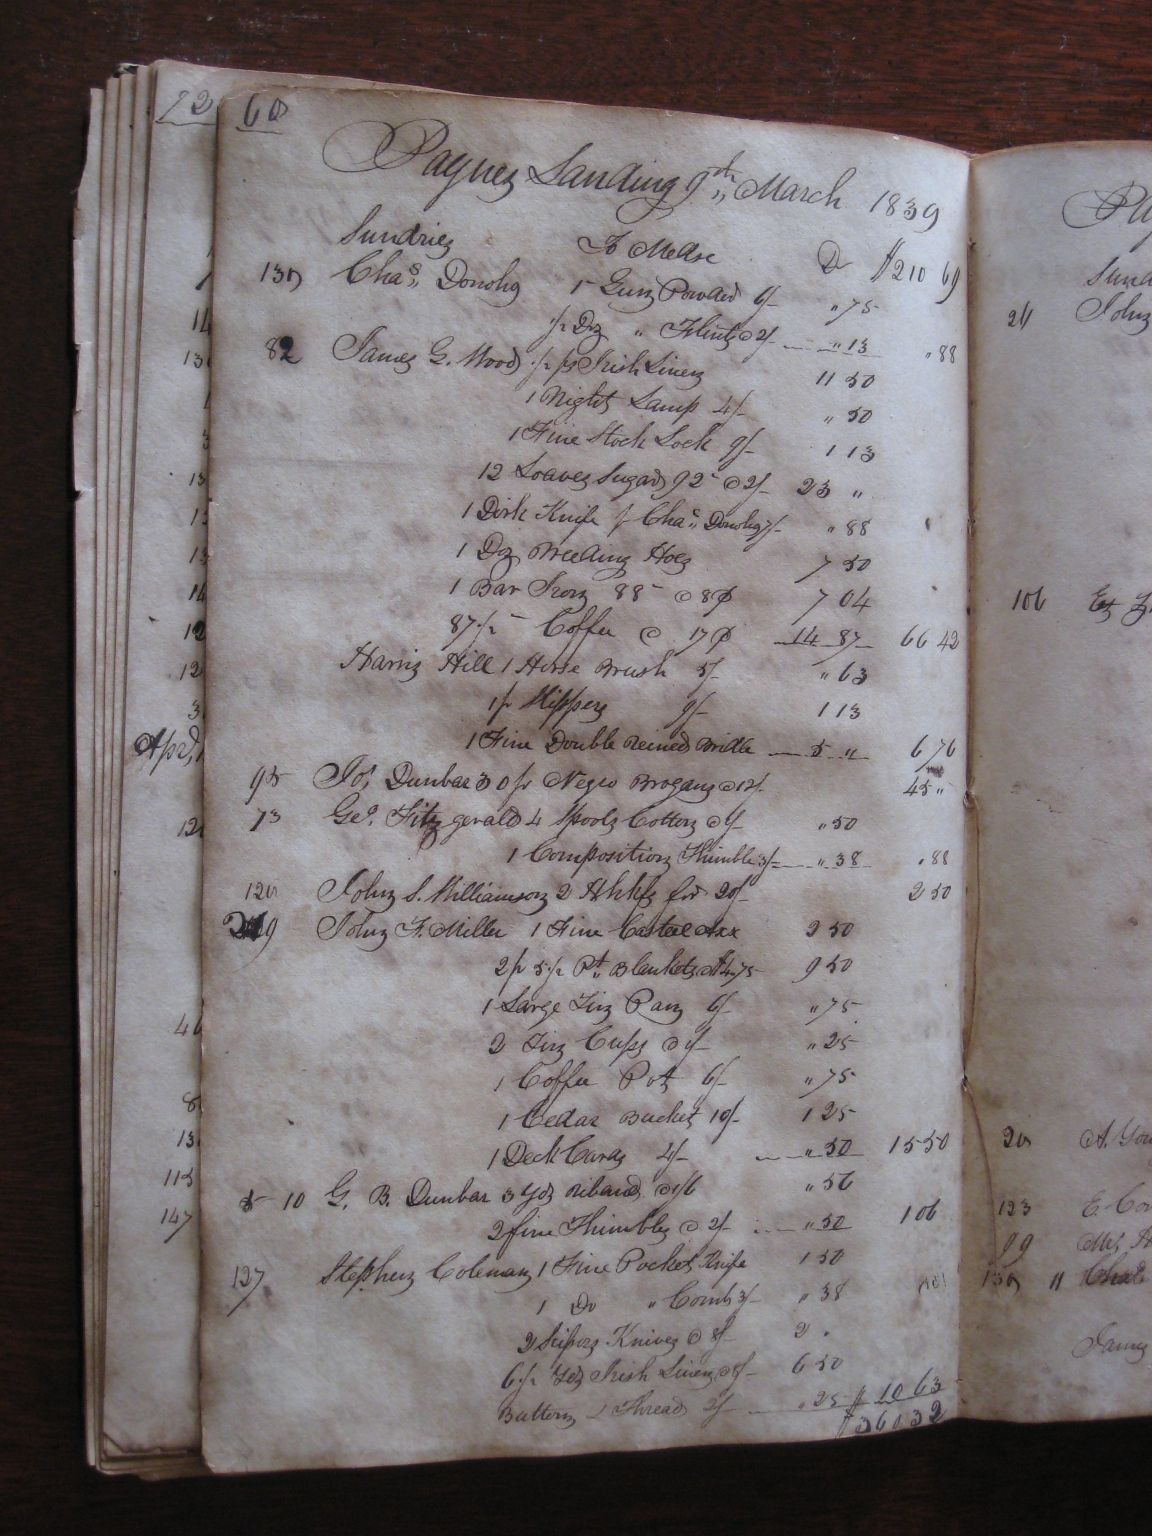 72
60
Paynes Landing 9th March 1839
Sundries To Mdse Dr $210 69
Chas. Donoho 1 Gun Powder 6/- " 75
1/2 Doz " Flints @ 2/- " 13 " 88
82 James G. Wood 1/2 ps Irish Linen 11 50
1 Night Lamp 4/- " 50
1 Fine Stock Lock 9/- 1 13
12 Loaves Sugar 92 @ 2/- 23 "
1 Dirk Knife Chas. Donoho 7/- " 88
1 Doz Weeding Hoes 7 50
1 Bar Iron 88 @ 8¢ 7 04
87 1/2 Coffee @ 17¢ 14 87 66 42
Harris Hill 1 Horse Brush 5/- " 63
1 pr Slippers 9/- 1 13
1 Fine Double Reined Bridle 5 " 6 76
Apr
95 Jos. Dunbar 30 pr Negro Brogans @ 12/- 45 "
73 Geo. Fitzgerald 4 Spools Cotton @ 1/- " 50
1 Composition Thimble 3/- " 38 " 88
John S. Williamson 2 Hhkfs for 20/- 2 50
John F. Miller 1 Fine Casteel Axe 2 50
2 pr 3 1/2 Pt. Blankets @ $4.75 9 50
1 Large Tin Pan 6/- " 75
2 Tin Cups @ 1/- " 25
1 Coffee Pot 6/- " 75
1 Cedar Bucket 10/- 1 25
1 Deck Cards 4/- " 50 15 50
10 G. B. Dunbar 3 Yds Riband @ 1/6 " 56
2 fine Thimbles @ 2/- " 50 1 06
127 Stephen Coleman 1 Fine Pocket Knife 1 50
1 Do " Comb 3/- " 38
2 Knives @ 8/- 2 "
6 1/2 Yds Irish Linen @ 8/- 6 50
Buttons & Thread 2/- " 25 $ 10 63
$360 32
24 John
106
20
123
99
James
147